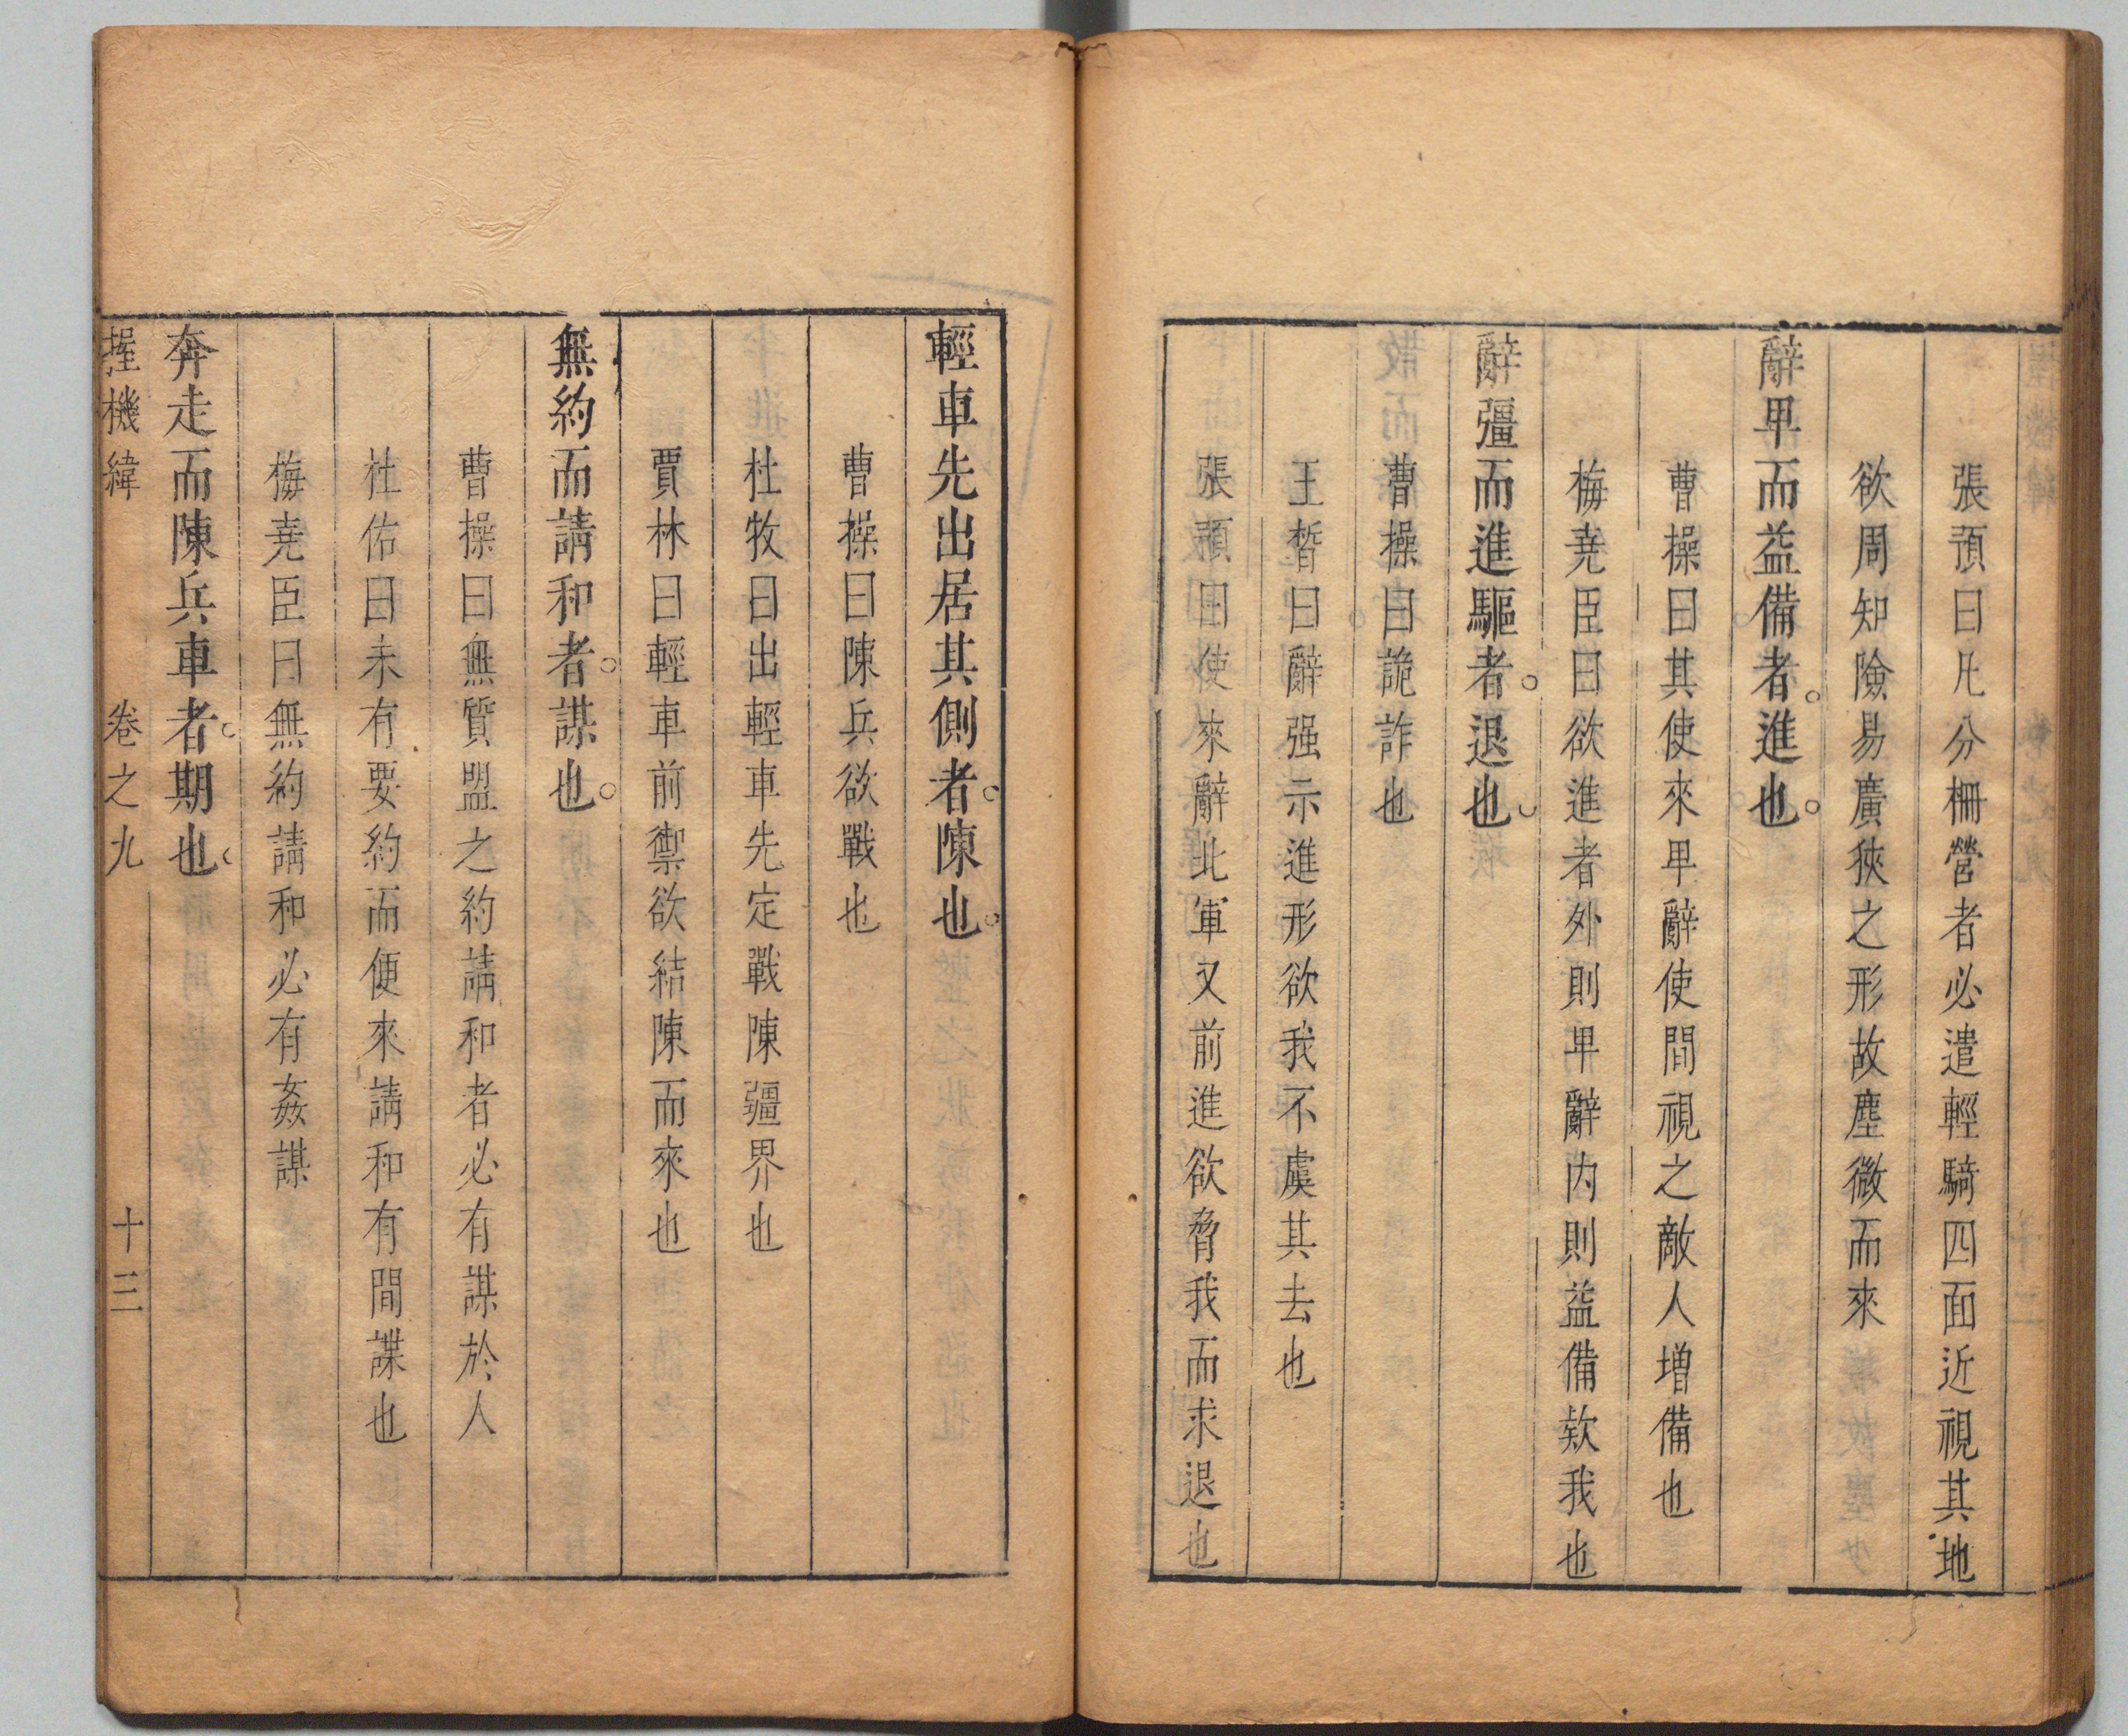 張預曰凡分柵營者必遣輕騎四面近視其地
欲周知險易廣狹之形故塵微而來
辭卑而益備者進也
曹操曰其使來卑辭使間視之敵人增備也
梅堯臣曰欲進者外則卑辭内則益備欵我也
辭彊而進驅者退也
曹操曰詭詐也
王晳曰辭强示進形欲我不虞其去也
張預曰使來辭壯軍又前進欲脅我而求退也
輕車先出居其側者陳也
曹操曰陳兵欲戰也
杜牧曰出輕車先定戰陳疆界也
賈林曰輕車前禦欲結陳而來也
無約而請和者謀也
曹操曰無質盟之約請和者必有謀於人
杜佑曰未有要約而便來請和有間諜也
梅堯臣曰無約請和必有姦謀
奔走而陳兵車者期也
握機緯 卷之九 十三